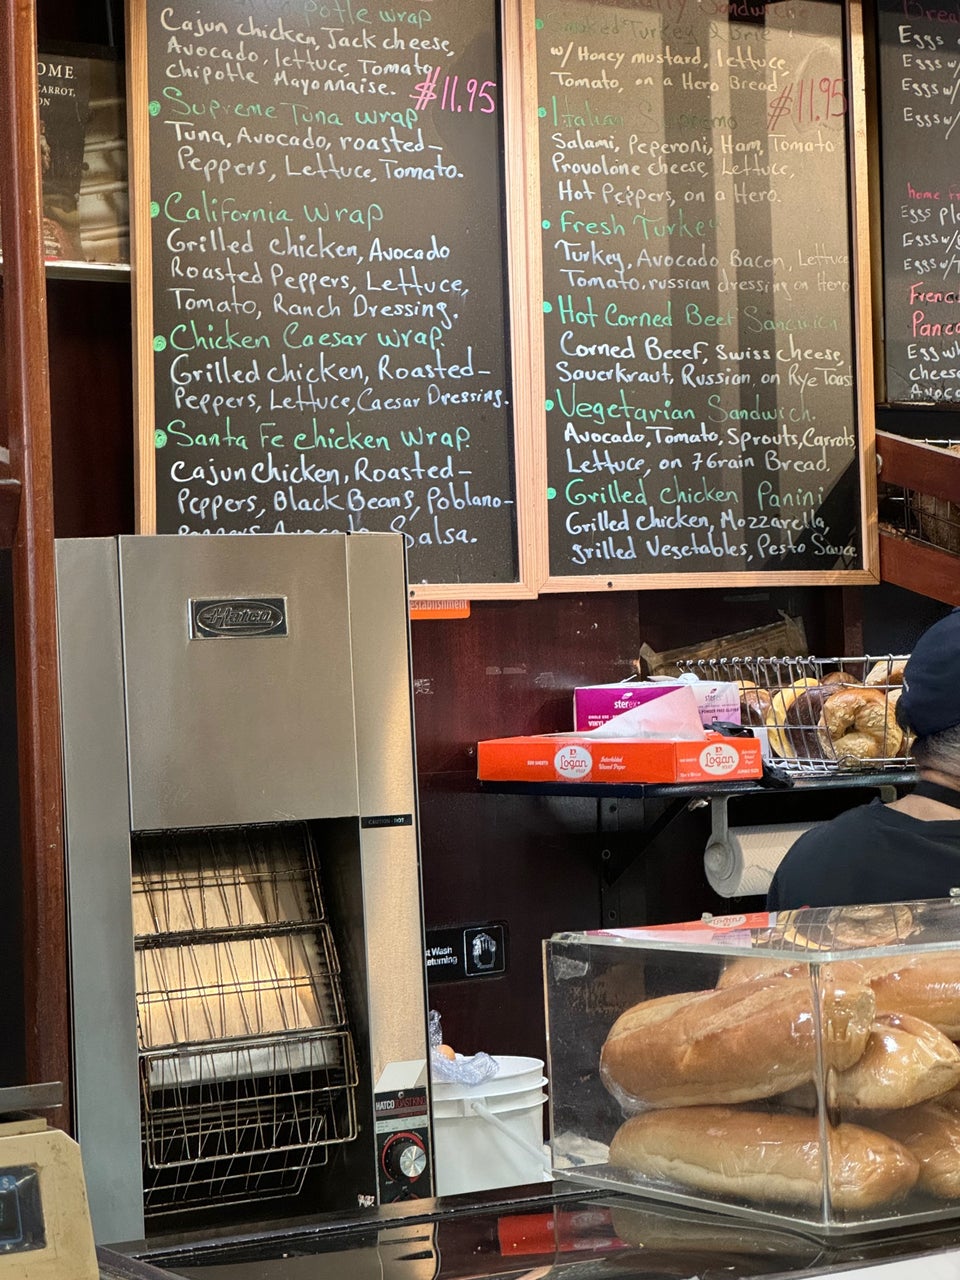 potle wrap
Cajun chicken, Jack cheese,
Avocado, lettuce, Tomato,
chipotle Mayonnaise. $11.95
Supreme Tuna wrap
Tuna, Avocado, roasted-
Peppers, Lettuce, Tomato.
California Wrap
Grilled chicken, Avocado
Roasted Peppers, Lettuce,
Tomato, Ranch Dressing.
Chicken Caesar wrap.
Grilled chicken, Roasted-
Peppers, Lettuce, Caesar Dressing.
Santa Fe chicken wrap.
Cajun Chicken, Roasted-
Peppers, Black Beans, Poblano-
peppers Avocado Salsa.
Smoked Turkey & Brie
w/ Honey mustard, lettuce,
Tomato, on a Hero Bread.
$11.95
Italian
Salami, Peperoni, Ham, Tomato
Provolone cheese, Lettuce,
Hot Peppers, on a Hero.
Fresh Turkey
Turkey, Avocado, Bacon, Lettuce
Tomato, russian dressing on Hero
Hot Corned Beef Sandwich
Corned Beeef, Swiss cheese,
Sauerkraut, Russian, on Rye Toast
Vegetarian Sandwich.
Avocado, Tomato, Sprouts, Carrots,
Lettuce, on 7 Grain Bread.
Grilled chicken Panini
Grilled chicken, Mozzarella,
grilled Vegetables, Pesto Sauce
Eggs
Eggs w/
Eggs w/
Eggs w/
home fr
Eggs pl
Eggs w/
Eggs w/
Frenc
Panca
Egg wh
cheese
Avoca
OME
CARROT,
ON
establishment
Hatco
CAUTION HOT
sterex
VINYL
sterex
POWDER FREE
500 SHEETS
Logan
Interfolded
Waxed Paper
Logan
Wash
eturning
HATCO TOAST KING